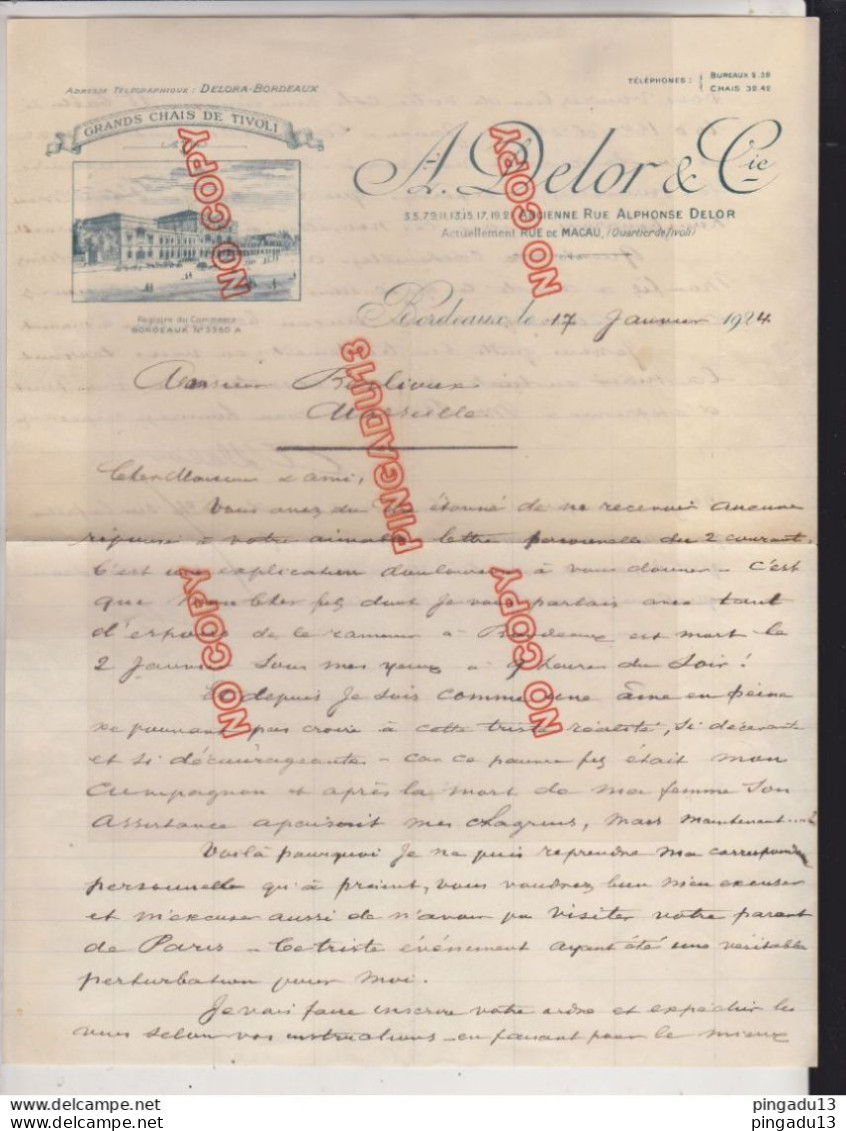 ADRESSE TÉLÉGRAPHIQUE : DELORA-BORDEAUX
TÉLÉPHONES : BUREAUX 9.39
CHAIS 32.42
GRANDS CHAIS DE TIVOLI
A. Delor & Cie
3.5.7.9.11.13.15.17.19.21 ANCIENNE RUE ALPHONSE DELOR
Actuellement RUE DE MACAU, (Quartier de Tivoli)
Registre du Commerce
BORDEAUX N° 3550 A
Bordeaux, le 17 Janvier 1924
Monsieur
Marseille
Cher Monsieur & ami,
Vous avez du étonné de ne recevoir aucune
réponse à votre aimable lettre personnelle du 2 courant.
C'est une explication douloureuse à vous donner - c'est
que mon cher fils dont je vous parlais avec tant
d'espoir de le ramener à Bordeaux est mort le
2 Janvier sous mes yeux à 9 heures du soir !
Et depuis je suis comme une âme en peine
ne pouvant pas croire à cette triste réalité, si décevante
et si décourageante - car ce pauvre fils était mon
compagnon et après la mort de ma femme son
assistance apaisait mes chagrins, mais maintenant....?
Voilà pourquoi je ne puis reprendre ma correspondce
personnelle qu'à présent, vous voudrez bien m'en excuser
et m'excuser aussi de n'avoir pu visiter votre parent
de Paris - Ce triste événement ayant été une véritable
perturbation pour moi.
Je vais faire inscrire votre ordre et expédier les
vins selon vos instructions - en faisant pour le mieux
NO COPY
NO COPY
PINGADU13
NO COPY
NO COPY
pingadu13
pingadu13
pingadu13
pingadu13